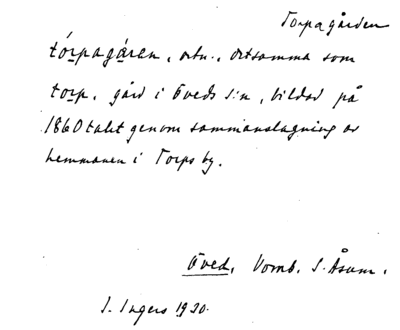 Torpagården
tórpagáren, ortn., ortsamma som
torp, gård i Öveds s:n, bildad på
1860talet genom sammanslagning av
hemmanen i Torps by.
Öved, Vomb, S. Åsum.
I. Ingers 1930.